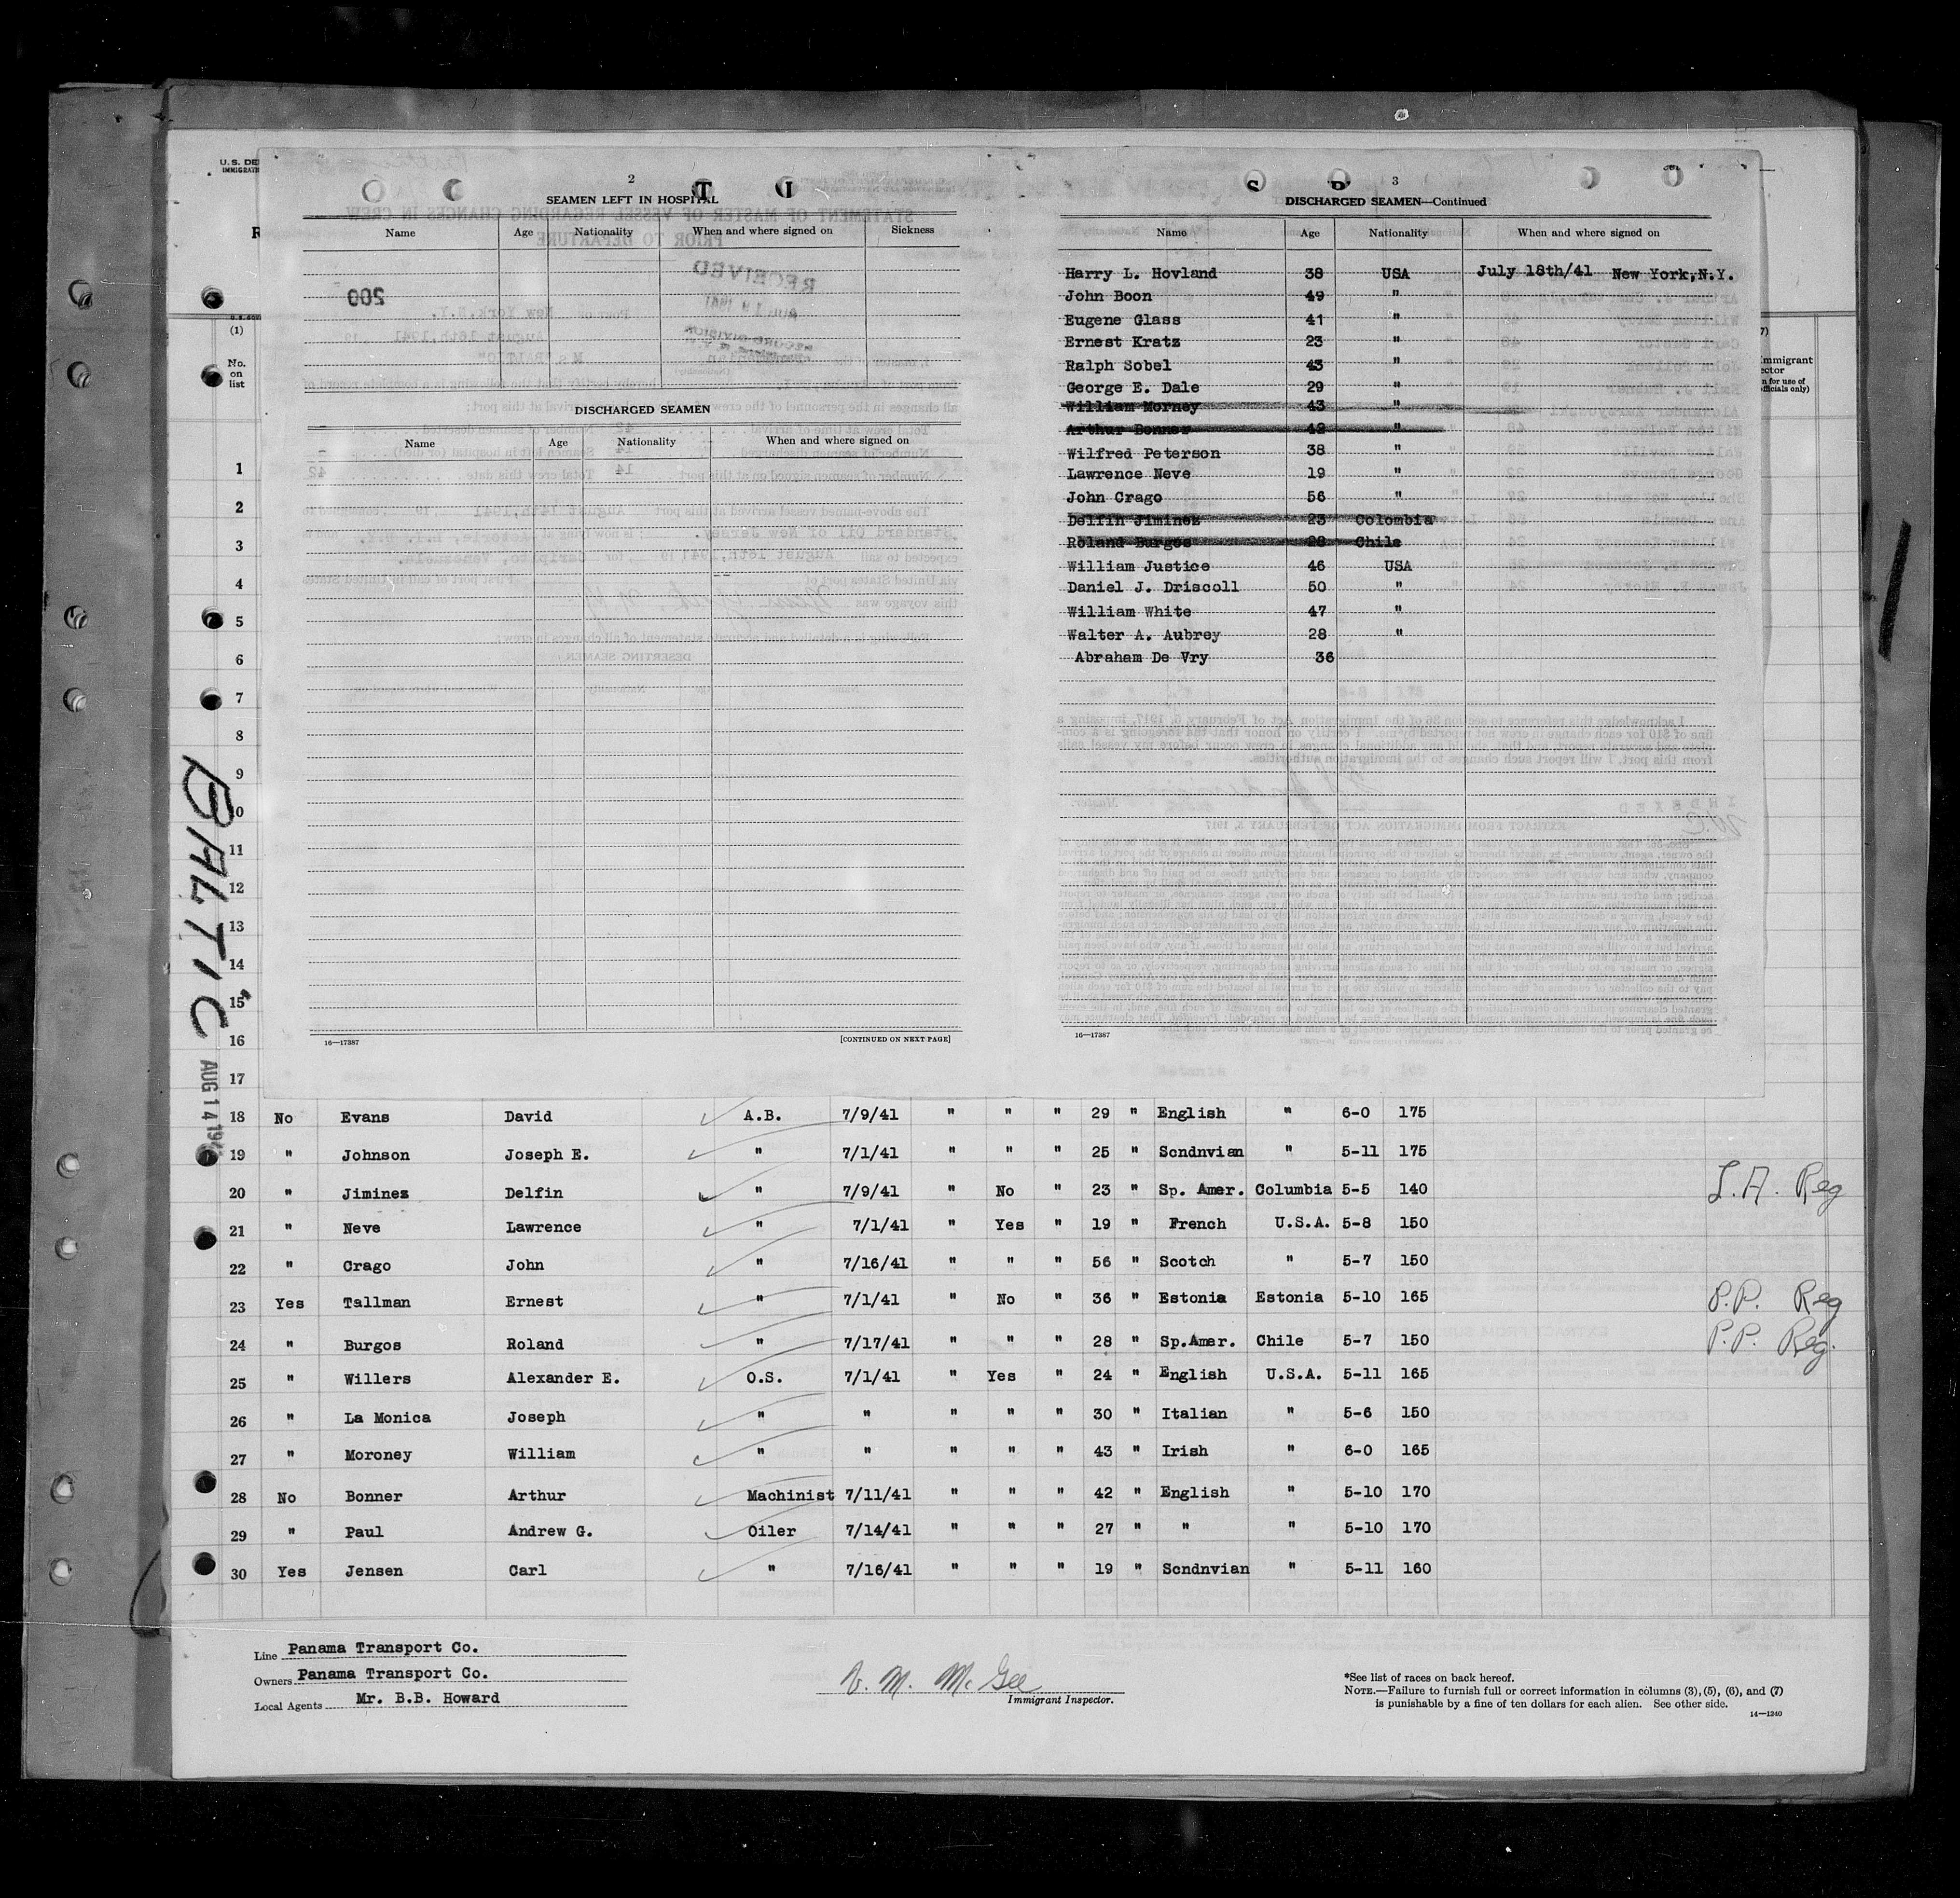 U.S. DE
IMMIGRAT
R
(1)
No.
on
list
2
SEAMEN LEFT IN HOSPITAL
Name Age Nationality When and where signed on Sickness
DISCHARGED SEAMEN
Name Age Nationality When and where signed on
16—17387 [CONTINUED ON NEXT PAGE]
3
DISCHARGED SEAMEN—Continued
Name Age Nationality When and where signed on
Harry L. Hovland 38 USA July 18th/41 New York,N.Y.
John Boon 49 "
Eugene Glass 41 "
Ernest Kratz 23 "
Ralph Sobel 43 "
George E. Dale 29 "
William Morney 43 "
Arthur Bonner 42 "
Wilfred Peterson 38 "
Lawrence Neve 19 "
John Crago 56 "
Delfin Jiminez 23 Colombia
Roland Burgos 28 Chile
William Justice 46 USA
Daniel J. Driscoll 50 "
William White 47 "
Walter A. Aubrey 28 "
Abraham De Vry 36
16—17387
mmigrant
ector
n for use of
fficials only)
1
2
3
4
5
6
7
8
9
10
11
12
13
14
15
16
17
BALTIC
AUG 14 194
18 No Evans David A.B. 7/9/41 " " " 29 " English " 6-0 175
19 " Johnson Joseph E. " 7/1/41 " " " 25 " Scndnvian " 5-11 175
20 " Jiminez Delfin " 7/9/41 " No " 23 " Sp. Amer. Columbia 5-5 140 L.A. Reg
21 " Neve Lawrence " 7/1/41 " Yes " 19 " French U.S.A. 5-8 150
22 " Crago John " 7/16/41 " " " 56 " Scotch " 5-7 150
23 Yes Tallman Ernest " 7/1/41 " No " 36 " Estonia Estonia 5-10 165 P.P. Reg
24 " Burgos Roland " 7/17/41 " " " 28 " Sp.Amer. Chile 5-7 150 P.P. Reg.
25 " Willers Alexander E. O.S. 7/1/41 " Yes " 24 " English U.S.A. 5-11 165
26 " La Monica Joseph " " " " " 30 " Italian " 5-6 150
27 " Moroney William " " " " " 43 " Irish " 6-0 165
28 No Bonner Arthur Machinist 7/11/41 " " " 42 " English " 5-10 170
29 " Paul Andrew G. Oiler 7/14/41 " " " 27 " " " 5-10 170
30 Yes Jensen Carl " 7/16/41 " " " 19 " Scndnvian " 5-11 160
Line Panama Transport Co.
Owners Panama Transport Co.
Local Agents Mr. B.B. Howard
V. M. McGee
Immigrant Inspector.
*See list of races on back hereof.
NOTE.—Failure to furnish full or correct information in columns (3), (5), (6), and (7)
is punishable by a fine of ten dollars for each alien. See other side.
14—1240